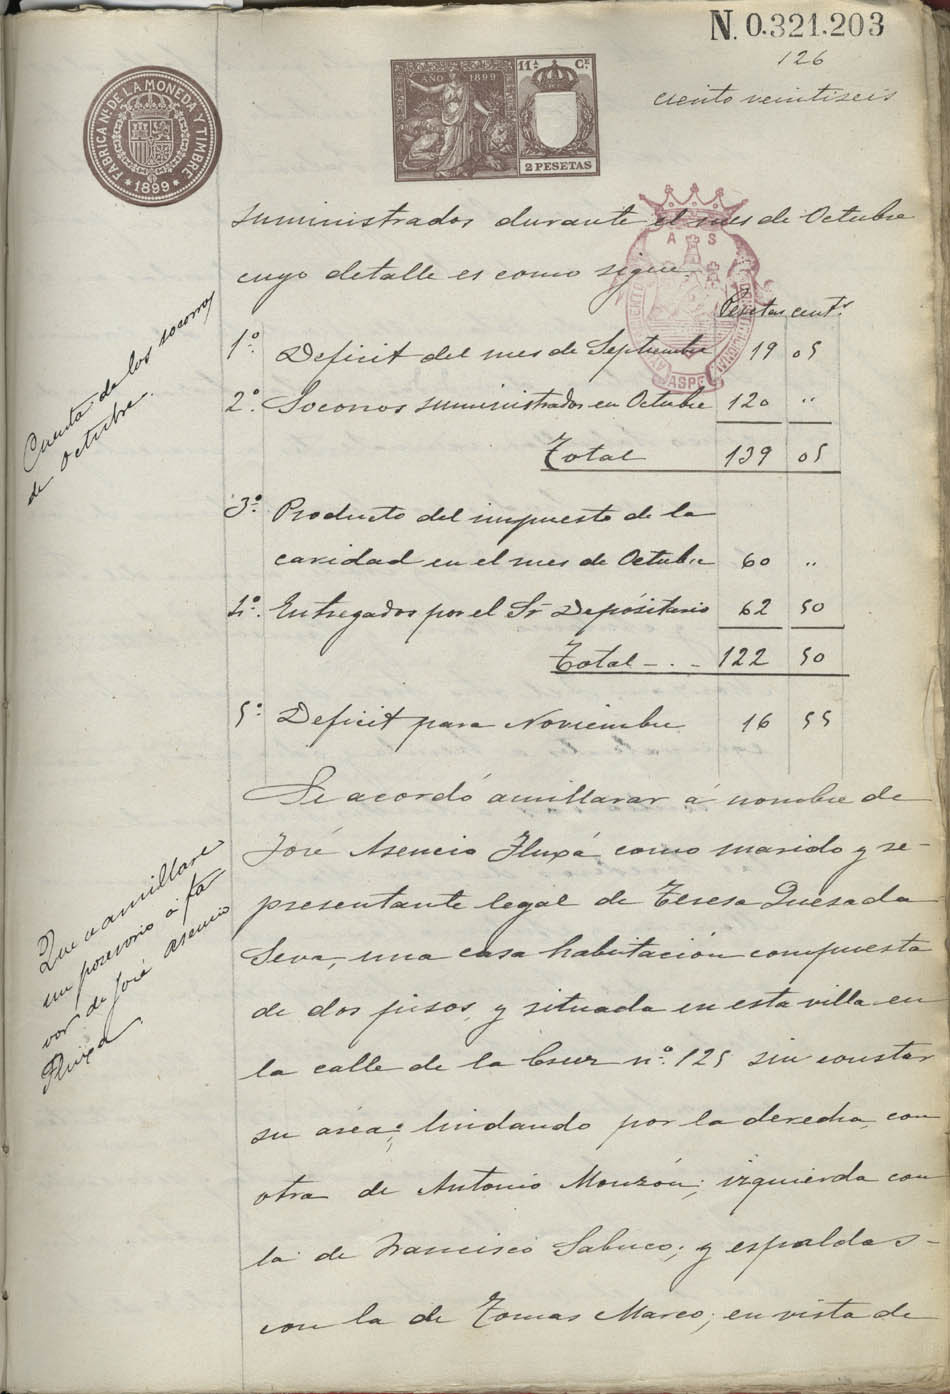 N. 0.321.203
126
ciento veintiseis
FABRICA Nal. DE LA MONEDA Y TIMBRE
* 1899 *
AÑO 1899
11.ª Ce.
2 PESETAS
suministrados durante el mes de Octubre
cuyo detalle es como sigue.
A S
ASPE
Pesetas cents
Cuenta de los socorros
de Octubre.
1º. Deficit del mes de Septiembre 19 05
2º. Socorros suministrados en Octubre 120 "
Total 139 05
3º. Producto del impuesto de la
caridad en el mes de Octubre 60 "
4º. Entregados por el Sr Depósitario 62 50
Total - . - 122 50
5º. Deficit para Noviembre 16 55
Que se amillare
un posesorio á fa
vor de José Asencio
Fluxá
Se acordó amillarar á nombre de
José Asencio Fluxá como marido y re-
presentante legal de Teresa Quesada
Seva, una casa habitación compuesta
de dos pisos, y situada en esta villa en
la calle de la Cruz nº. 125 sin constar
su área; lindando por la derecha con
otra de Antonio Monzón; izquierda con
la de Francisco Sabuco; y espaldas-
con la de Tomas Marco; en vista de